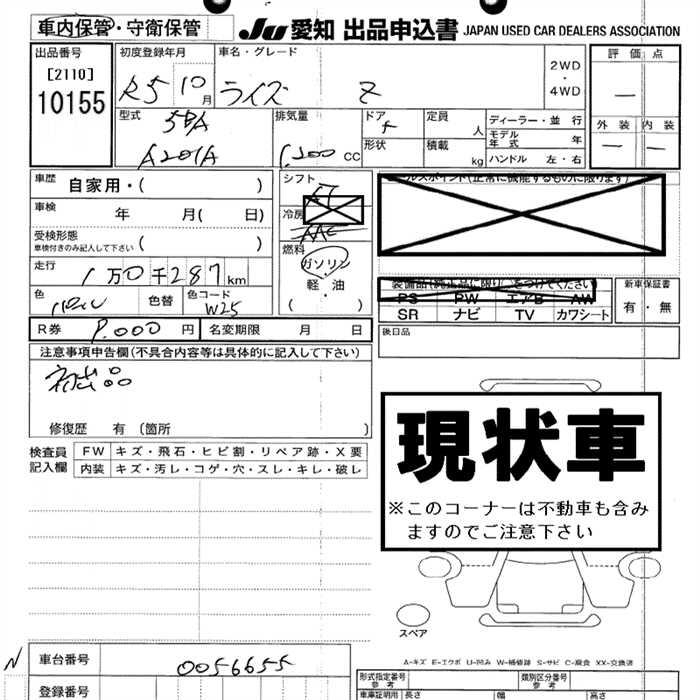 車内保管・守衛保管 JU 愛知 出品申込書 JAPAN USED CAR DEALERS ASSOCIATION
出品番号 [2110] 10155
初度登録年月 R5 10月
車名・グレード ライズ Z
2WD・4WD
評価点 —
外装 — 内装 —
型式 5BA A201A
排気量 1,200 CC
ドア 5
形状
定員 人
積載 kg
ディーラー・並行
モデル年式 年
ハンドル 左・右
車歴 自家用・( )
車検 年 月( 日)
受検形態 車検付きのみ記入して下さい ( )
走行 1万0千287km
シフト AT
冷房 AAC
燃料 ガソリン・軽油 ( )
色 色替 色コード W25
R券 9,000円 名変期限 月 日
セールスポイント(正常に機能するものに限ります)
装備品(純正品に限り)をつけてください
PS PW エアB AW
SR ナビ TV カワシート
新車保証書 有・無
後日品
注意事項申告欄(不具合内容等は具体的に記入して下さい)
初出品
修復歴 有(箇所 )
検査員記入欄
FW キズ・飛石・ヒビ割・リペア跡・X要
内装 キズ・汚レ・コゲ・穴・スレ・キレ・破レ
現状車
※このコーナーは不動車も含み
ますのでご注意下さい
スペア
A-キズ E-エクボ U-凹み W-補修跡 S-サビ C-腐食 XX-交換済
N
車台番号 0056655
登録番号
形式指定番号 参考
類別区分番号 参考
車庫証明用 参考 長さ 幅 高さ